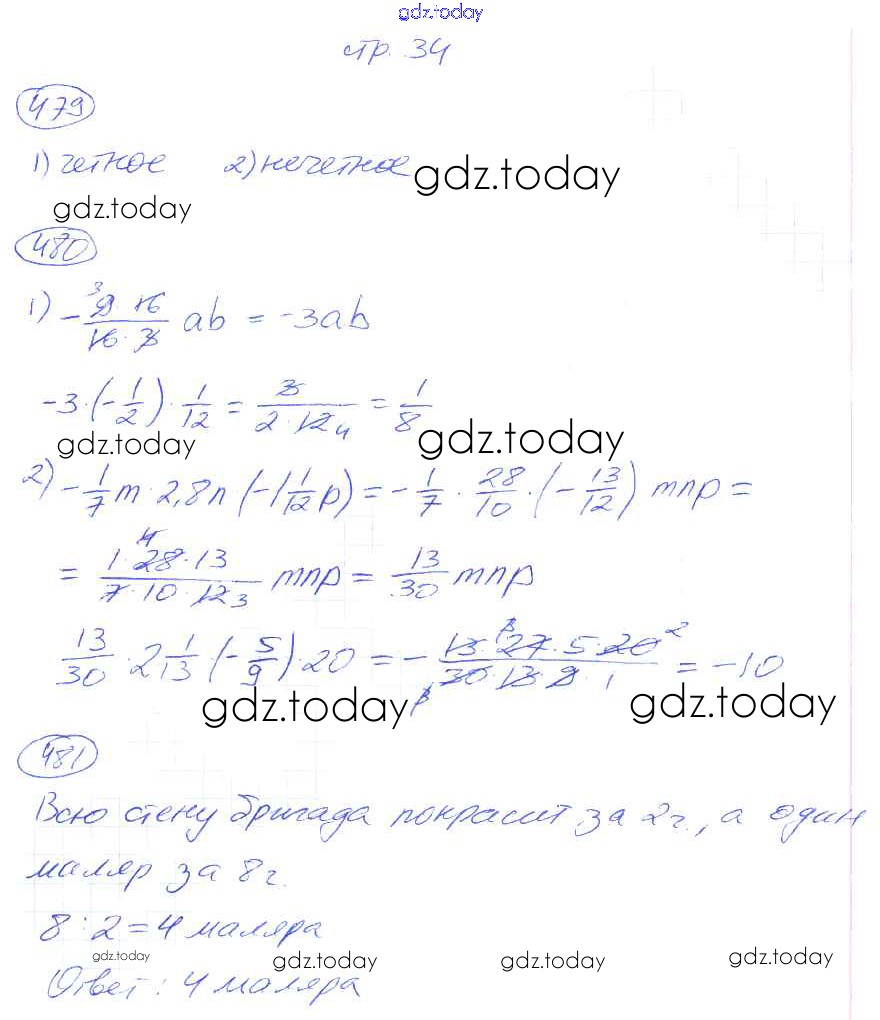 gdz.today
стр. 34
479
1) четное 2) нечетное gdz.today
gdz.today
480
1) -(9·16)/(16·3) ab = -3ab
-3·(-1/2)·1/12 = 3/(2·12) = 1/8
gdz.today gdz.today
2) -1/7 m·2,8n (-1 1/12 p) = -1/7 · 28/10 · (-13/12) mnp =
= (1·28·13)/(7·10·12) mnp = 13/30 mnp
13/30 · 2 1/13 (-5/9)·20 = -(13·27·5·20)/(30·13·9·1) = -10
gdz.today gdz.today
481
Всю стену бригада покрасит за 2г., а один
маляр за 8г.
8 : 2 = 4 маляра
gdz.today gdz.today gdz.today gdz.today
Ответ: 4 маляра